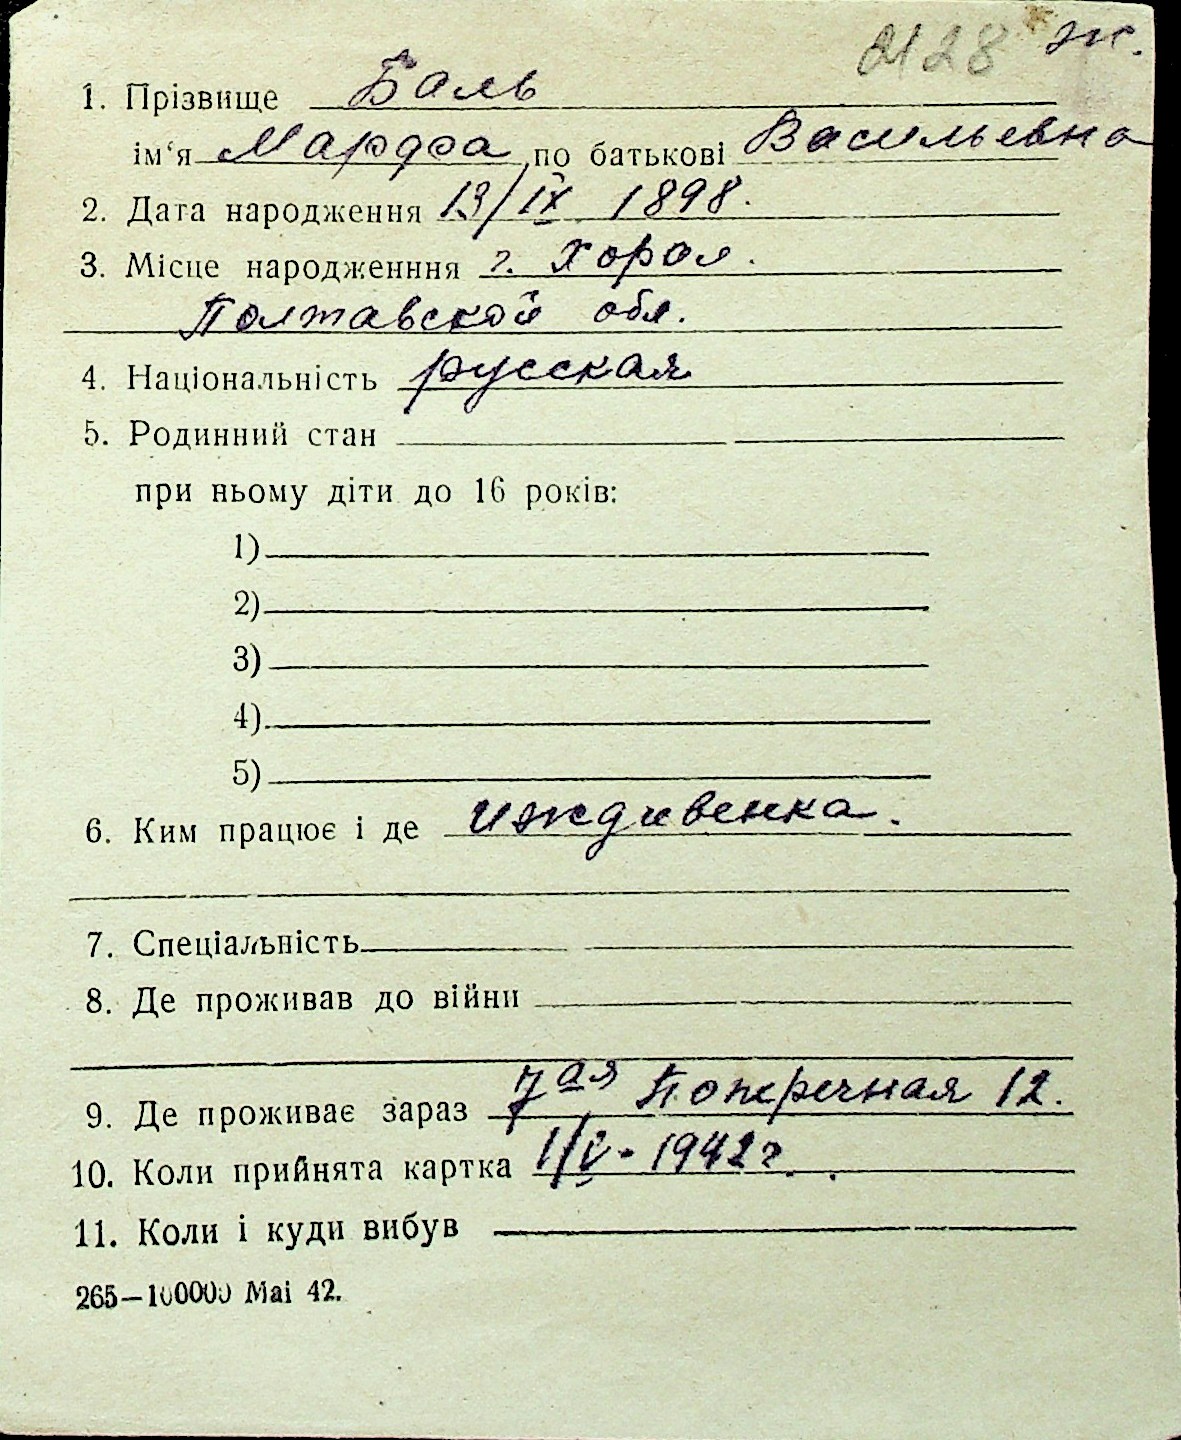 2128 ж.
1. Прізвище Баль
ім‘я Марфа, по батькові Васильевна
2. Дата народження 13/IX 1898.
3. Місце народженння г. Хорол.
Полтавской обл.
4. Національність русская
5. Родинний стан
при ньому діти до 16 років:
1)
2)
3)
4)
5)
6. Ким працює і де иждивенка.
7. Спеціальність
8. Де проживав до війни
9. Де проживає зараз 7ая Поперечная 12.
10. Коли прийнята картка 1/V - 1942 г.
11. Коли і куди вибув
265—100000 Mai 42.